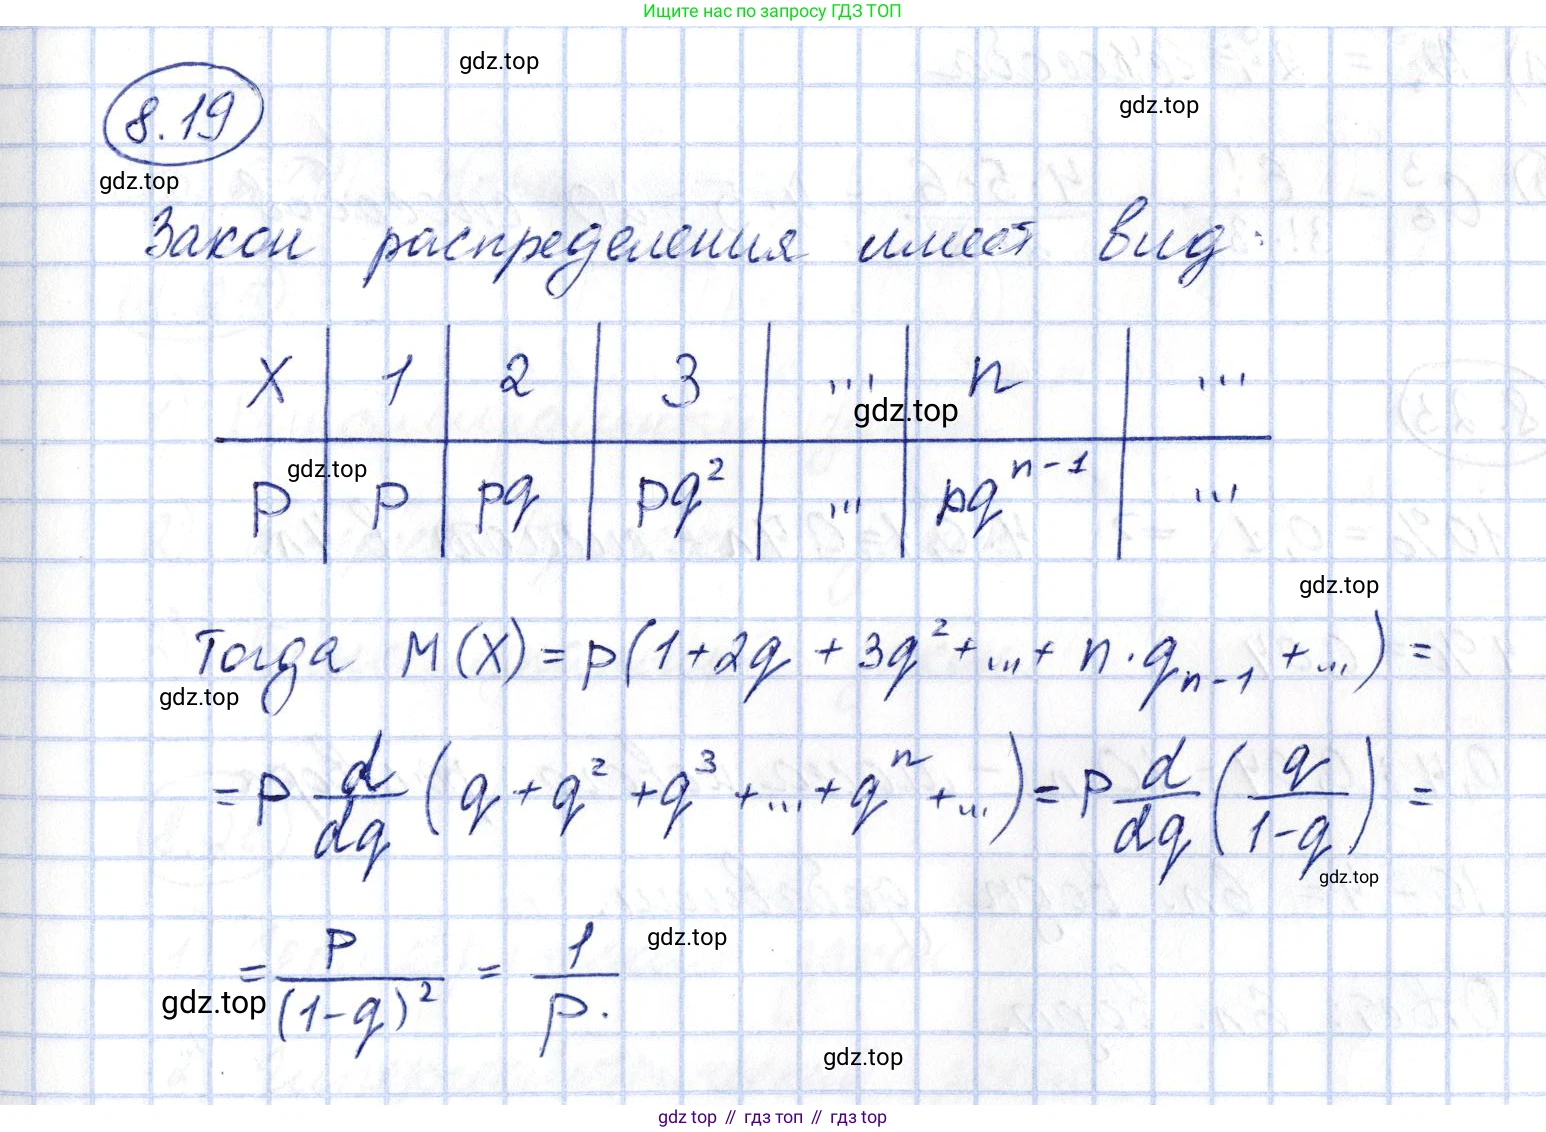 Ищите нас по запросу ГДЗ ТОП
gdz.top
gdz.top
8.19
gdz.top
Закон распределения имеет вид:
X | 1 | 2 | 3 | ... | n | ...
gdz.top
gdz.top
p | p | pq | pq² | ... | pqⁿ⁻¹ | ...
gdz.top
Тогда M(X) = p(1+2q+3q²+...+n·qₙ₋₁+...) =
gdz.top
= p d/dq (q+q²+q³+...+qⁿ+...) = p d/dq (q/(1-q)) =
gdz.top
= p/(1-q)² = 1/p.
gdz.top
gdz.top
gdz.top
gdz top // гдз топ // гдз top